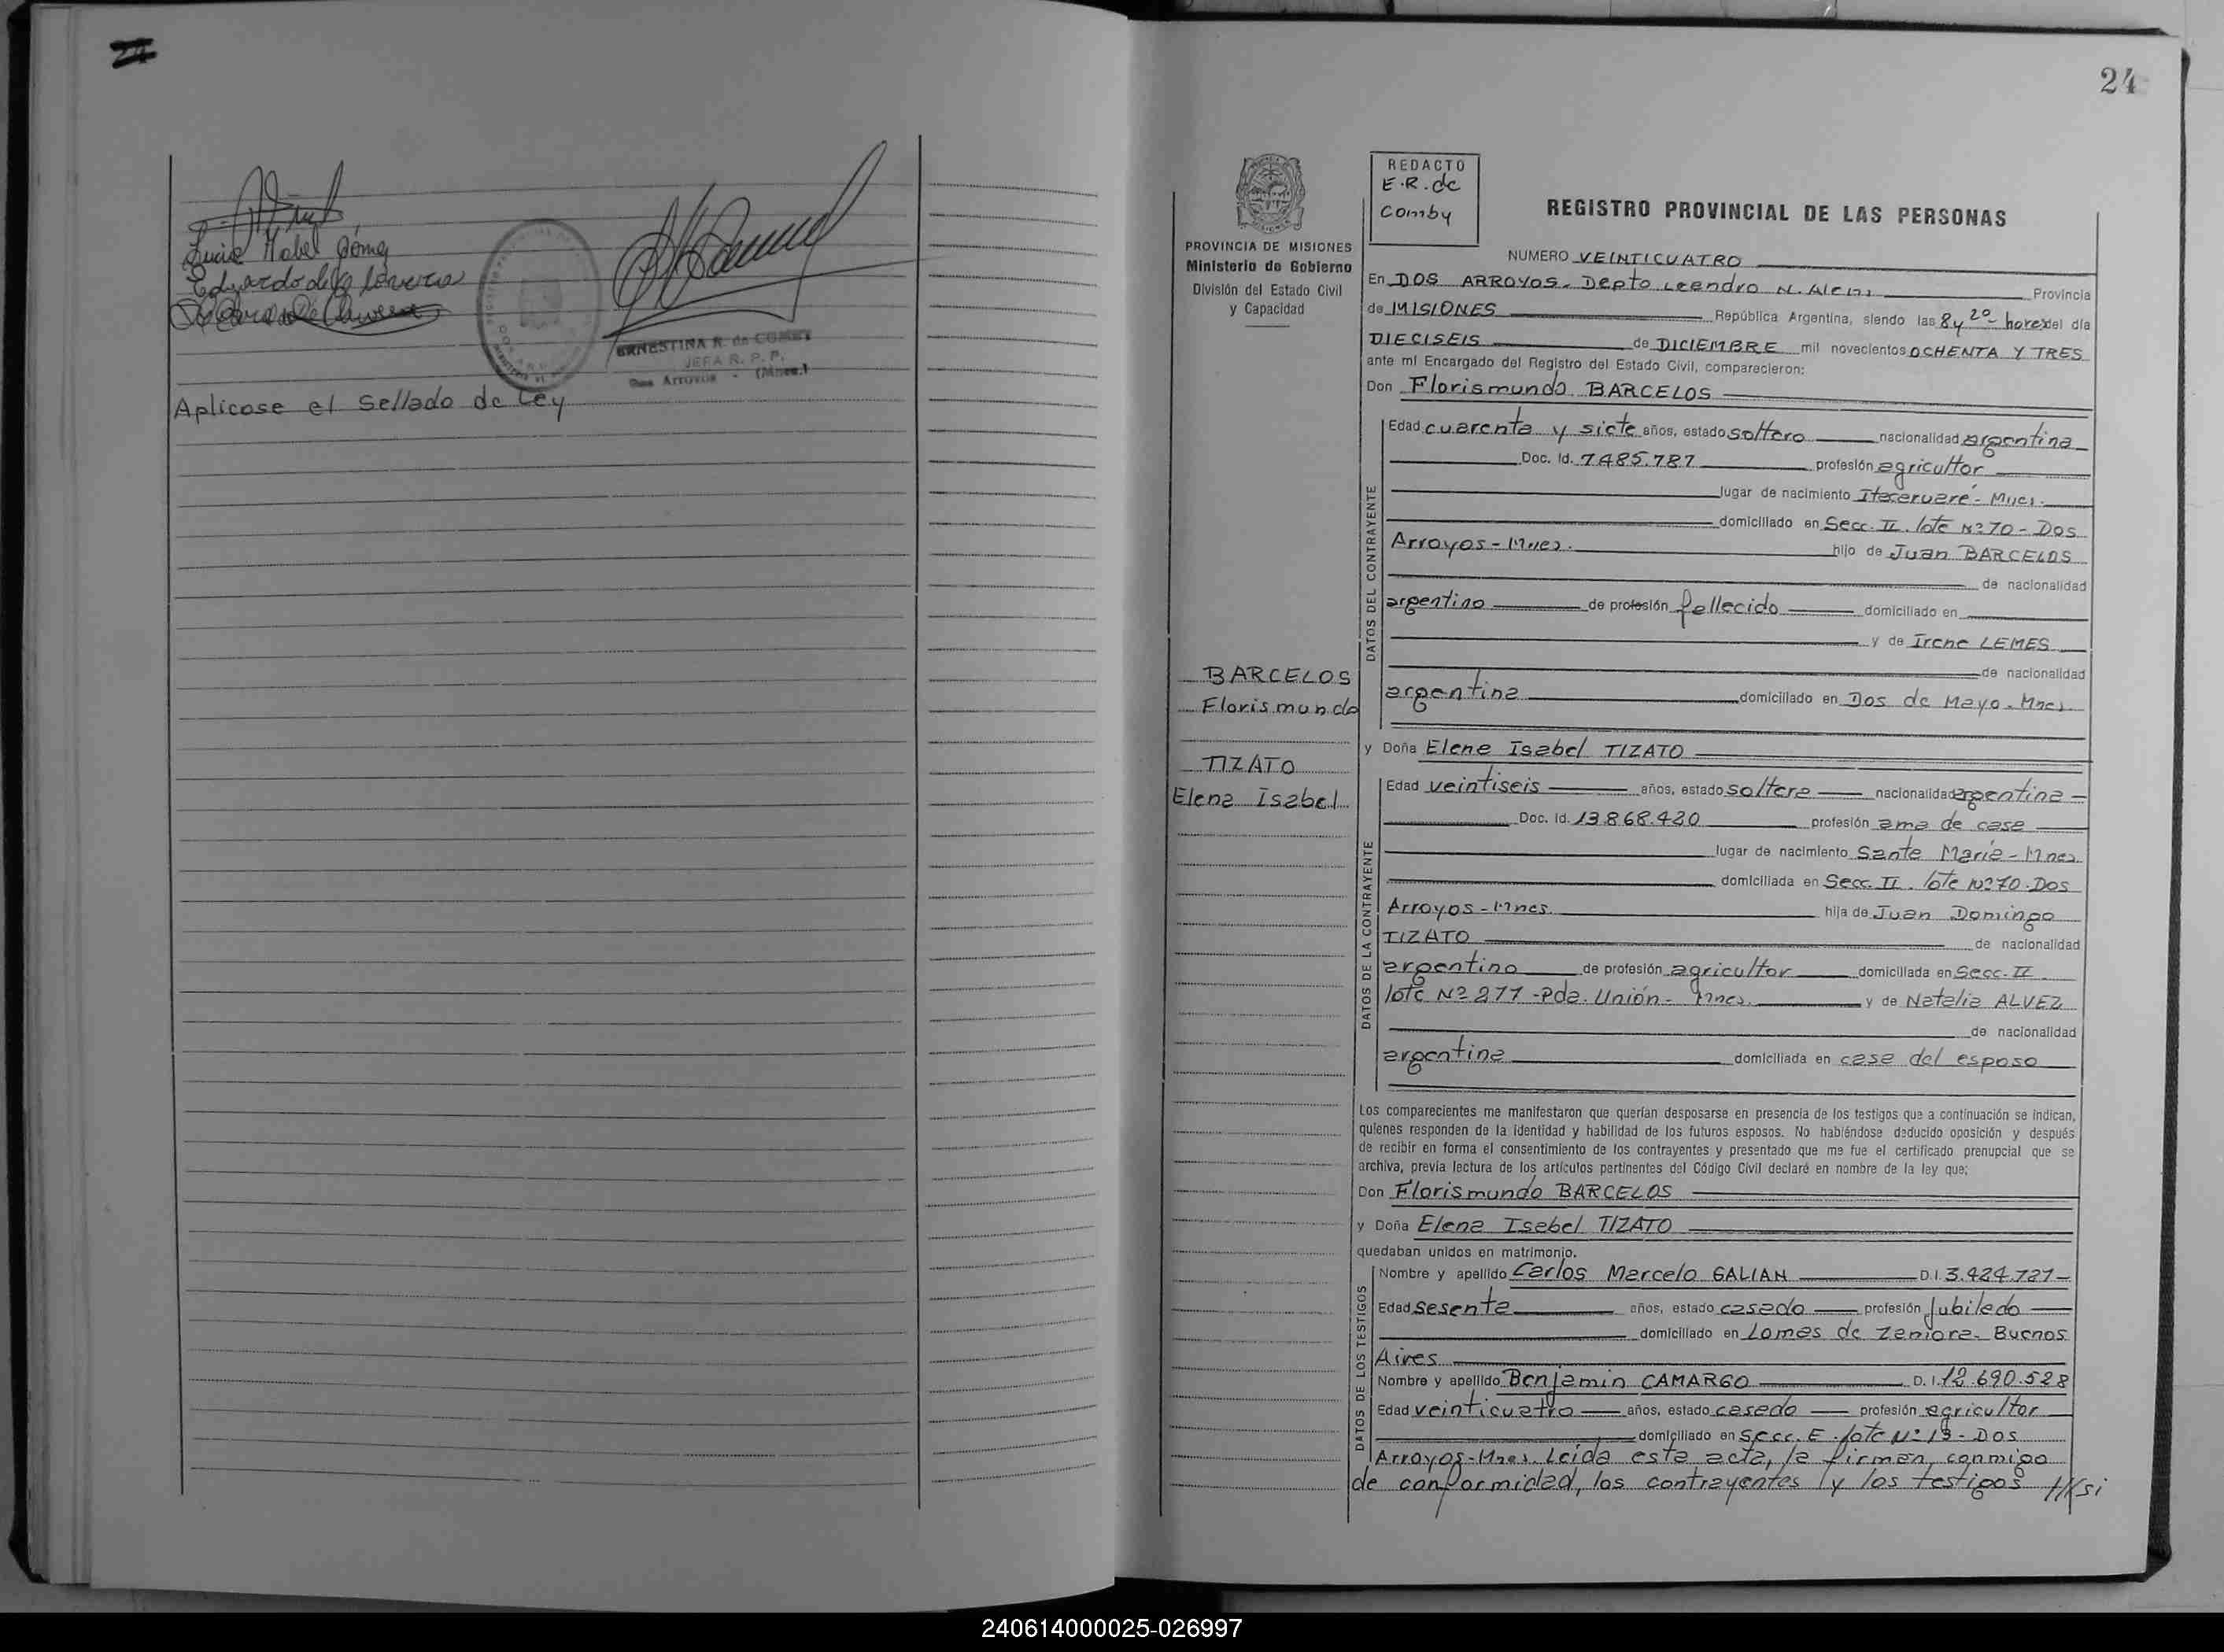 24
Lucia Mabel Gómez
Eduardo
ERNESTINA R. de COMBY
JEFA R. P. P.
Dos Arroyos - (Mnes.)
Aplicose el Sellado de Ley
24
REDACTO
E.R. de
Comby
PROVINCIA DE MISIONES
Ministerio de Gobierno
División del Estado Civil
y Capacidad
REGISTRO PROVINCIAL DE LAS PERSONAS
NUMERO VEINTICUATRO
En DOS ARROYOS - Depto Leandro N. Alem Provincia
de MISIONES República Argentina, siendo las 8 y 20 horas del día
DIECISEIS de DICIEMBRE mil novecientos OCHENTA Y TRES
ante mí Encargado del Registro del Estado Civil, comparecieron:
Don Florismundo BARCELOS
DATOS DEL CONTRAYENTE
Edad cuarenta y siete años, estado soltero nacionalidad argentina
Doc. Id. 7.485.787 profesión agricultor
lugar de nacimiento Itacaruaré - Mnes.
domiciliado en Secc. II. lote Nº 70 - Dos
Arroyos - Mnes. hijo de Juan BARCELOS
de nacionalidad
argentino de profesión fallecido domiciliado en
y de Irene LEMES
de nacionalidad
argentina domiciliado en Dos de Mayo - Mnes.
BARCELOS
Florismundo
TIZATO
Elena Isabel
y Doña Elena Isabel TIZATO
DATOS DE LA CONTRAYENTE
Edad veintiseis años, estado soltera nacionalidad argentina
Doc. Id. 13.868.420 profesión ama de casa
lugar de nacimiento Santa María - Mnes.
domiciliada en Secc. II. lote Nº 70 - Dos
Arroyos - Mnes. hija de Juan Domingo
TIZATO de nacionalidad
argentino de profesión agricultor domiciliada en Secc. II
lote Nº 277 - Pda. Unión - Mnes. y de Natalia ALVEZ
de nacionalidad
argentina domiciliada en casa del esposo
Los comparecientes me manifestaron que querían desposarse en presencia de los testigos que a continuación se indican,
quienes responden de la identidad y habilidad de los futuros esposos. No habiéndose deducido oposición y después
de recibir en forma el consentimiento de los contrayentes y presentado que me fue el certificado prenupcial que se
archiva, previa lectura de los artículos pertinentes del Código Civil declaré en nombre de la ley que;
Don Florismundo BARCELOS
y Doña Elena Isabel TIZATO
quedaban unidos en matrimonio.
DATOS DE LOS TESTIGOS
Nombre y apellido Carlos Marcelo GALIAN D.I. 3.424.727
Edad sesenta años, estado casado profesión Jubilado
domiciliado en Lomas de Zamora - Buenos
Aires
Nombre y apellido Benjamin CAMARGO D.I. 12.690.528
Edad veinticuatro años, estado casado profesión agricultor
domiciliado en Secc. E. lote Nº 13 - Dos
Arroyos - Mnes. Leida esta acta, la firman conmigo
de conformidad, los contrayentes y los testigos
240614000025-026997